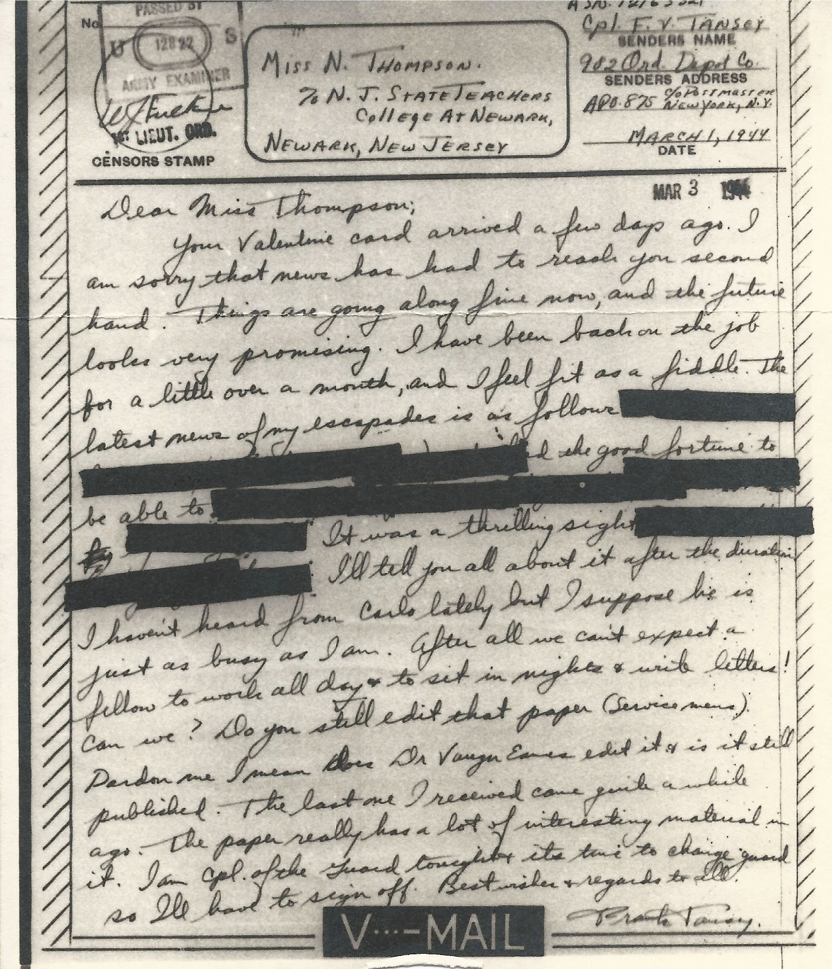 PASSED BY
No.
U 12822 S
ARMY EXAMINER
1ST LIEUT. ORD.
CENSORS STAMP
MISS N. THOMPSON.
% N. J. STATE TEACHERS
COLLEGE AT NEWARK,
NEWARK, NEW JERSEY
Cpl. F. V. TANSEY
SENDERS NAME
902 Ord Depot Co.
SENDERS ADDRESS
APO. 875 c/o POSTMASTER
NEW YORK, N.Y.
MARCH 1, 1944
DATE
MAR 3 1944
Dear Miss Thompson;
Your Valentine card arrived a few days ago. I
am sorry that news has had to reach you second
hand. Things are going along fine now, and the future
looks very promising. I have been back on the job
for a little over a month, and I feel fit as a fiddle. The
latest news of my escapades is as follows
the good fortune to
be able to
It was a thrilling sight
I'll tell you all about it after the duration
I haven't heard from Carlo lately but I suppose he is
just as busy as I am. After all we can't expect a
fellow to work all day & to sit in nights & write letters!
can we? Do you still edit that paper (Service mens)
Pardon me I mean does Dr Vaugn Eames edit it & is it still
published. The last one I received came quite a while
ago. The paper really has a lot of interesting material in
it. I am Cpl. of the Guard tonight & its time to change guard
so I'll have to sign off. Best wishes & regards to all.
Frank Tansey.
V···—MAIL